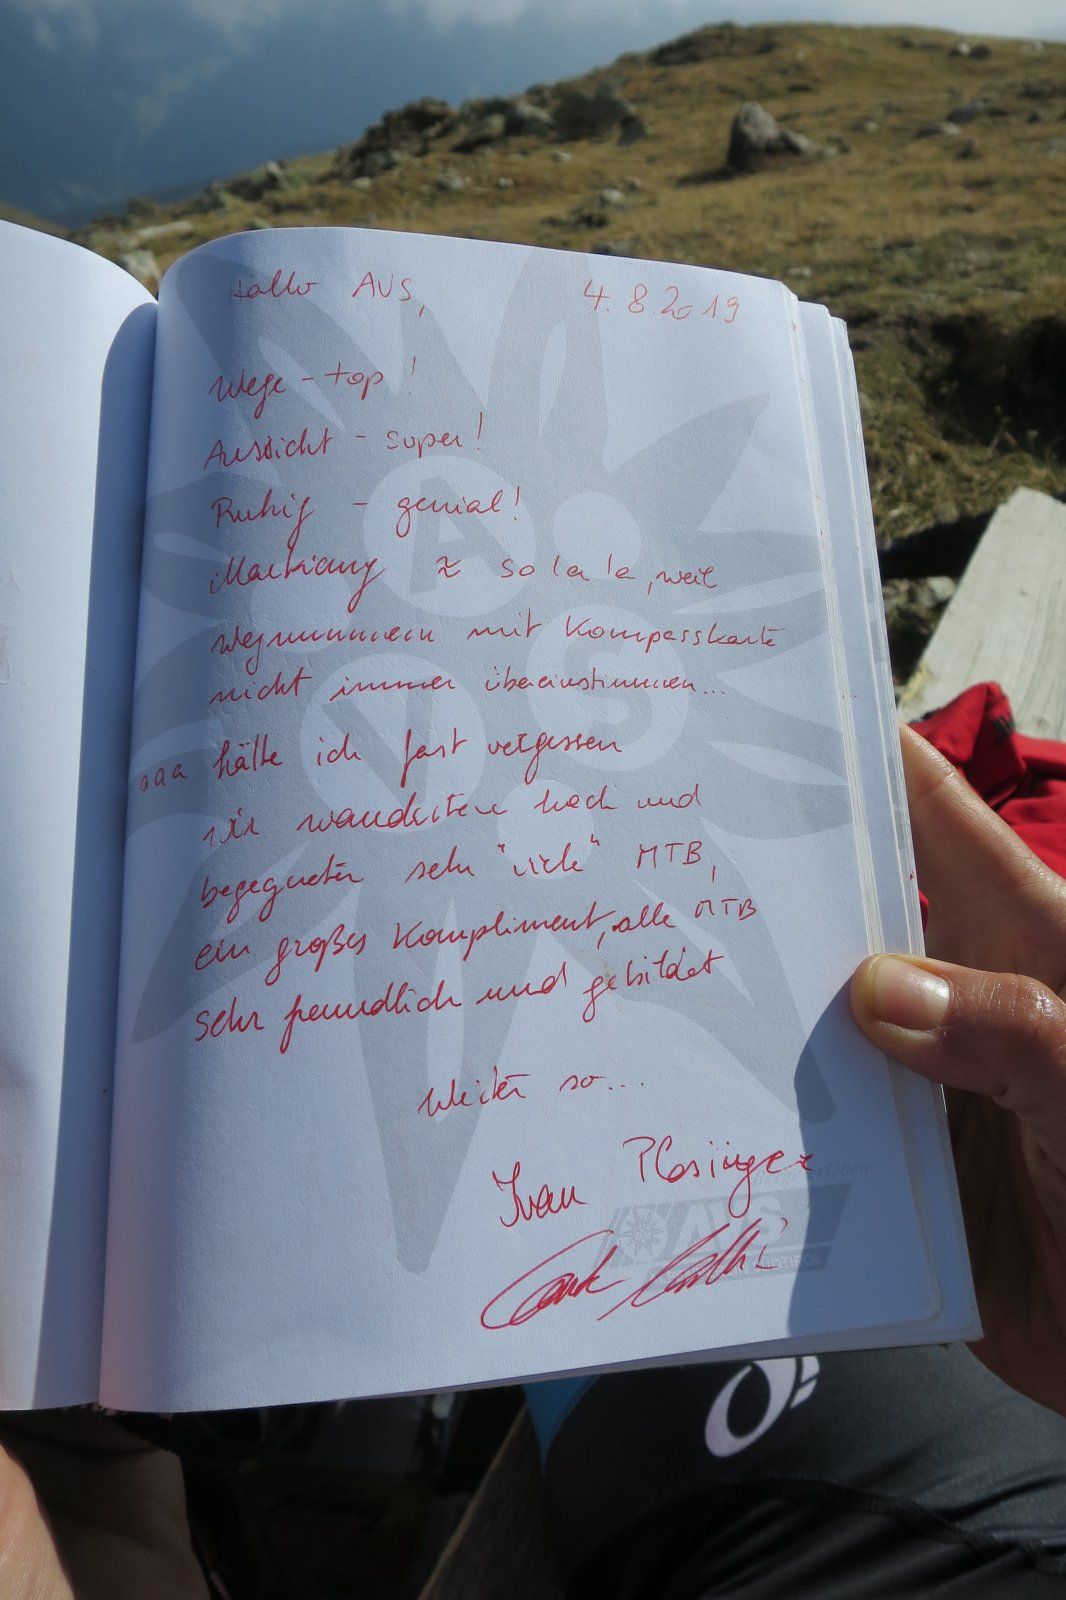 Hallo AVS, 4.8.2019
Wege - top!
Aussicht - super!
Ruhig - genial!
Markierung ≈ so la la, weil
Wegnummern mit Kompasskarte
nicht immer übereinstimmen...
aaa hätte ich fast vergessen
wir wanderten hoch und
begegneten sehr "viele" MTB,
ein großes Kompliment, alle MTB
sehr freundlich und gebildet
Weiter so...
Ivan
Berge erleben
AVS
SÜDTIROL